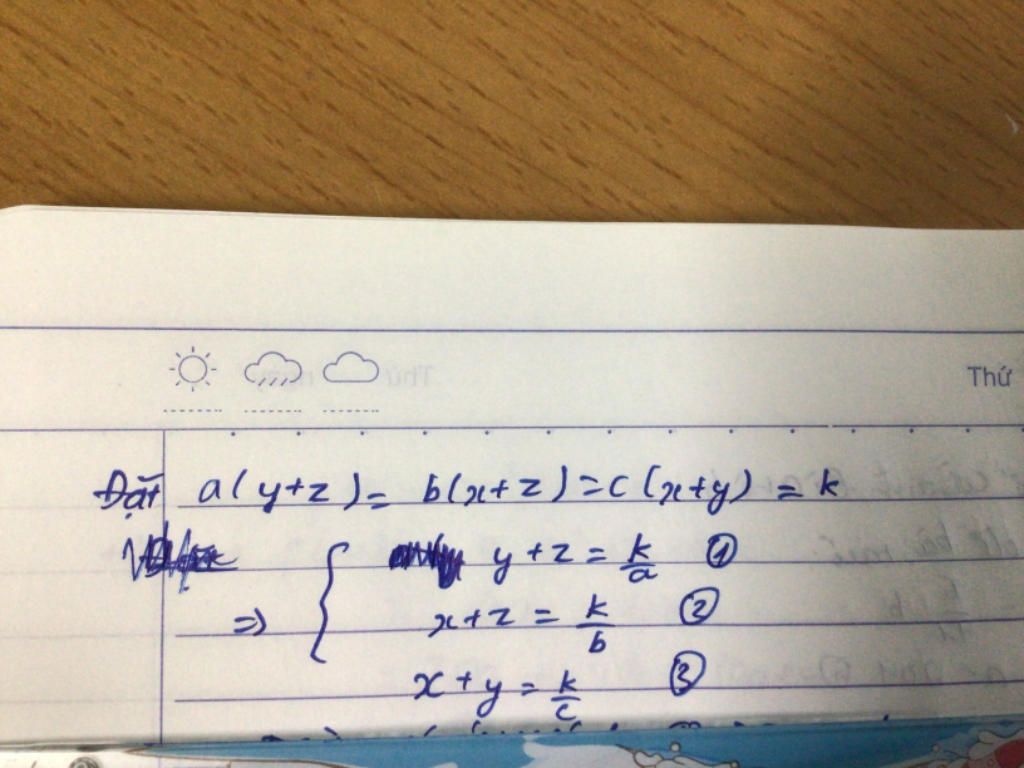 Thứ
Đặt a(y+z) = b(x+z) = c(x+y) = k
y+z = k/a ①
=> { x+z = k/b ②
x+y = k/c ③